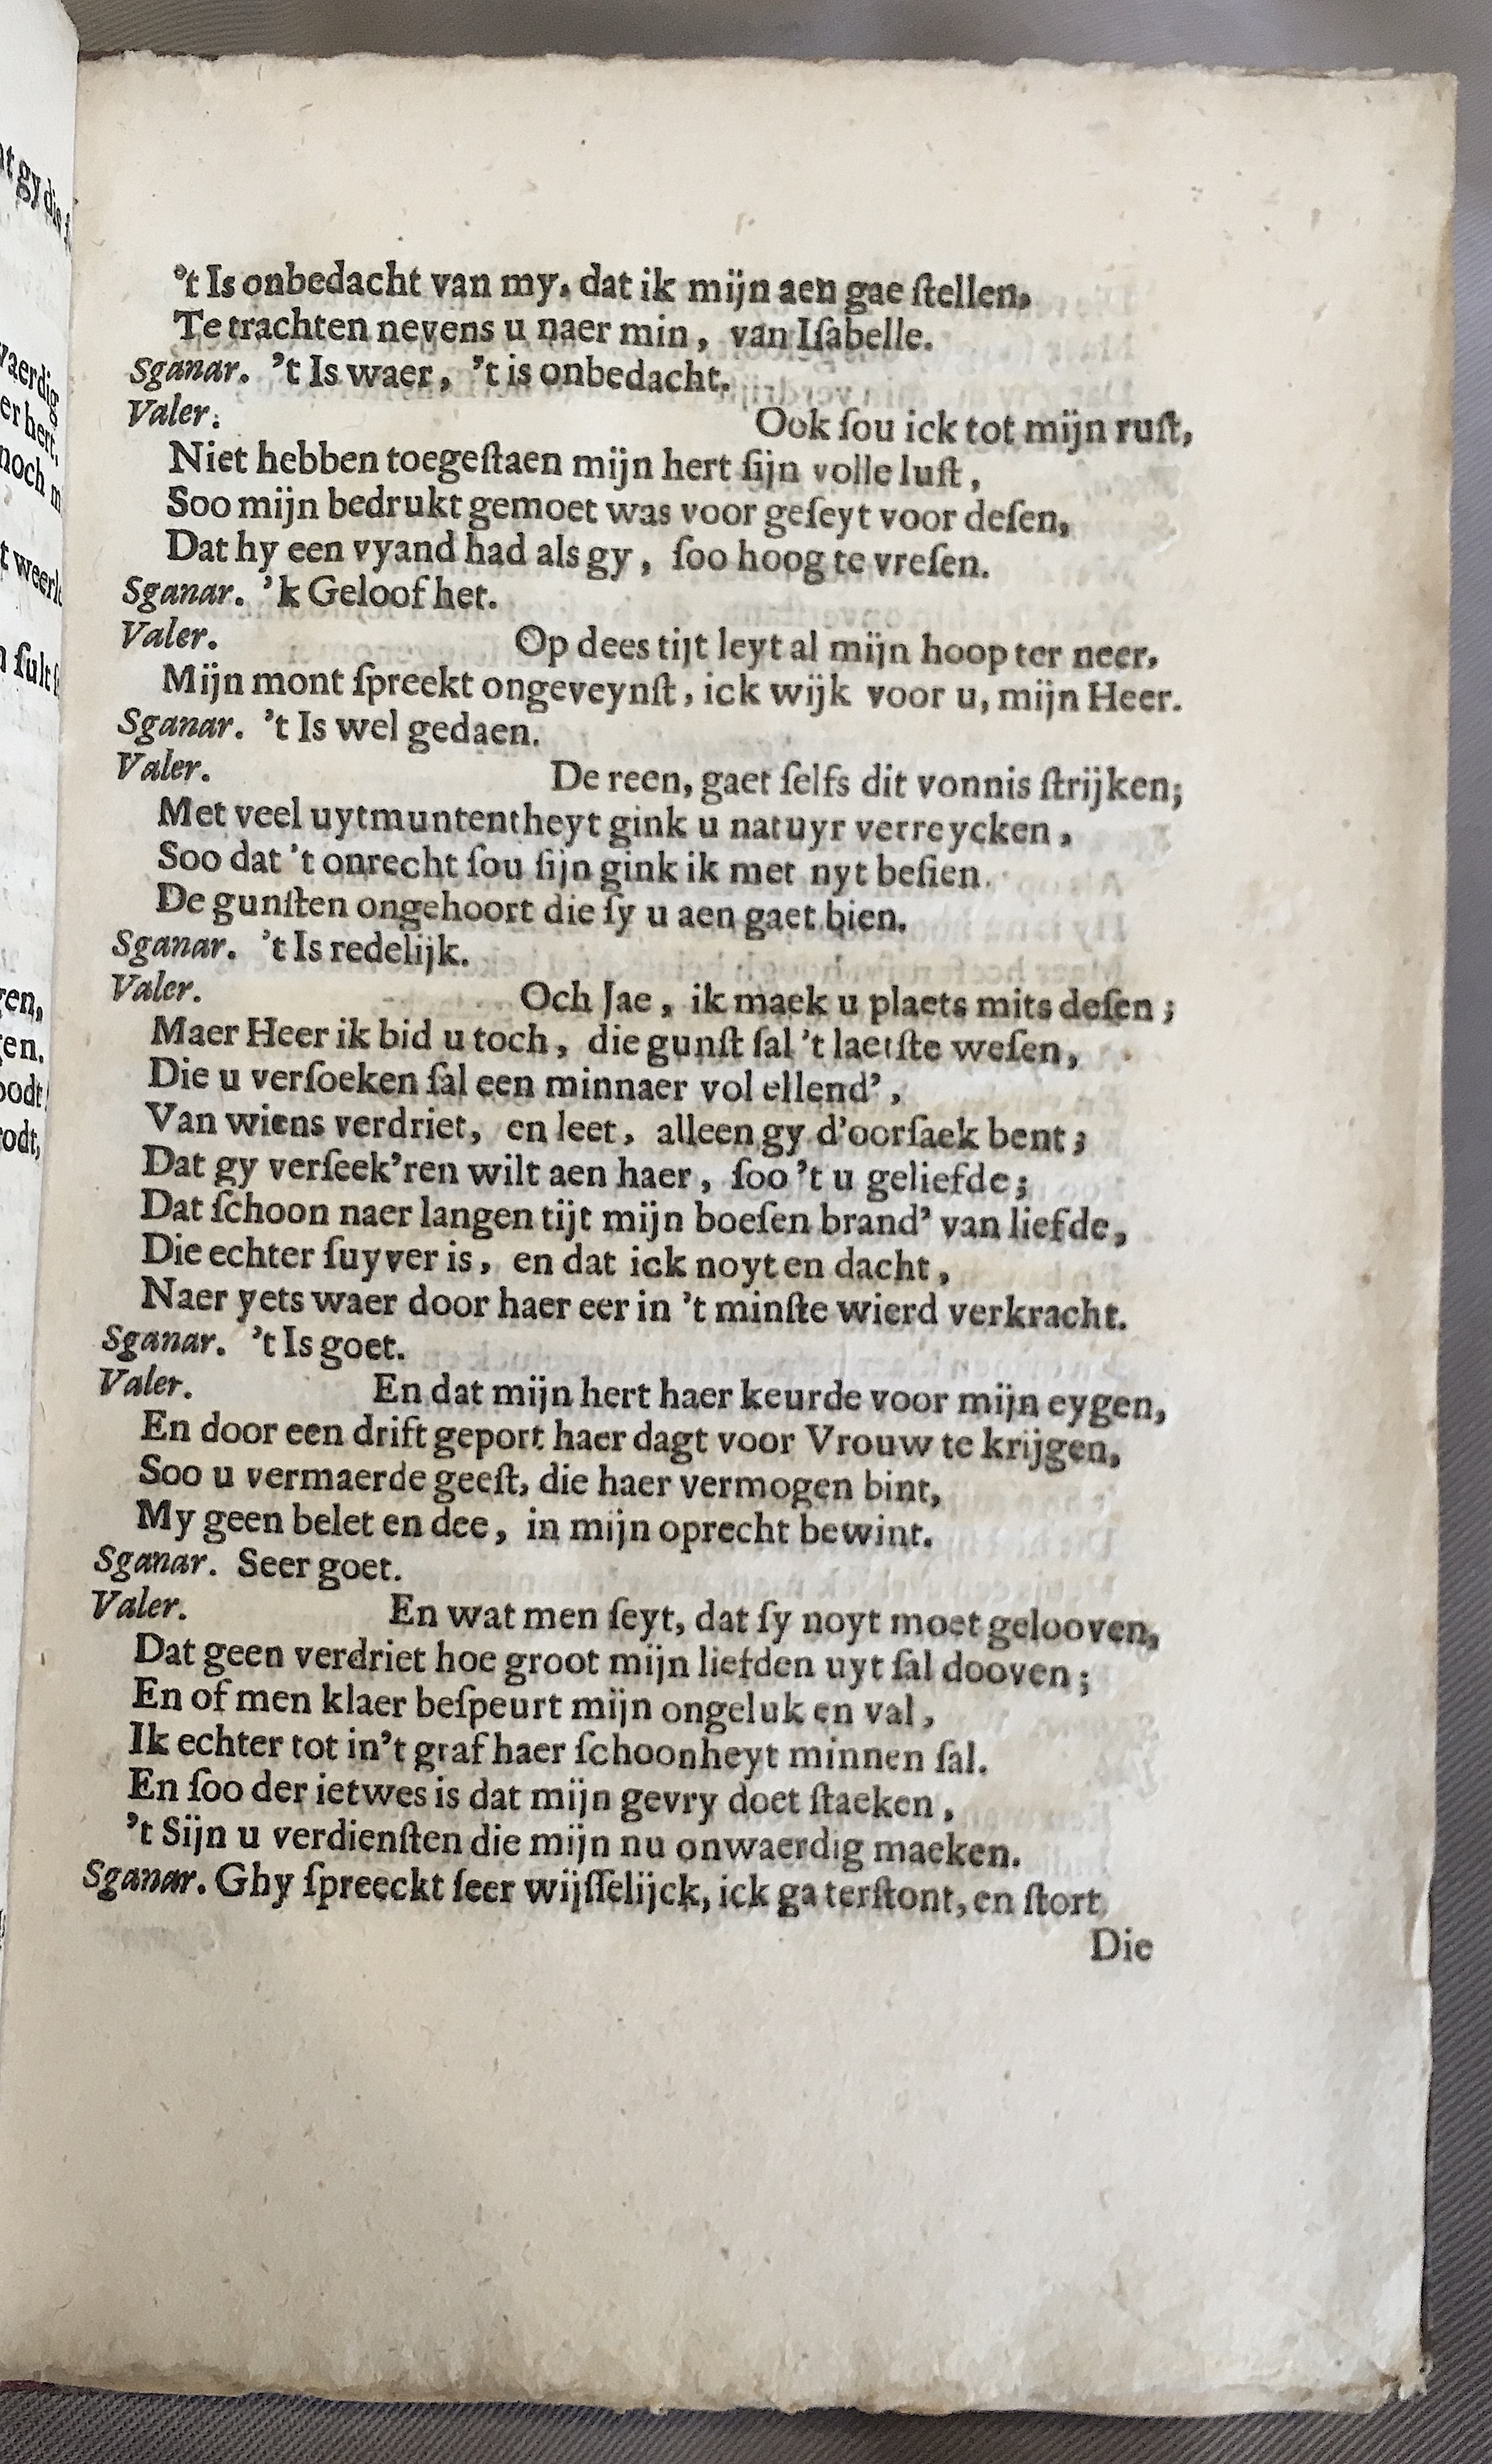 't Is onbedacht van my, dat ik mijn aen gae ſtellen,
Te trachten nevens u naer min, van Iſabelle.
Sganar. 't Is waer, 't is onbedacht.
Valer. Ook ſou ick tot mijn ruſt,
Niet hebben toegeſtaen mijn hert ſijn volle luſt,
Soo mijn bedrukt gemoet was voor geſeyt voor deſen,
Dat hy een vyand had als gy, ſoo hoog te vreſen.
Sganar. 'k Geloof het.
Valer. Op dees tijt leyt al mijn hoop ter neer,
Mijn mont ſpreekt ongeveynſt, ick wijk voor u, mijn Heer.
Sganar. 't Is wel gedaen.
Valer. De reen, gaet ſelfs dit vonnis ſtrijken;
Met veel uytmuntentheyt gink u natuyr verreycken,
Soo dat 't onrecht ſou ſijn gink ik met nyt beſien.
De gunſten ongehoort die ſy u aen gaet bien.
Sganar. 't Is redelijk.
Valer. Och Jae, ik maek u plaets mits deſen;
Maer Heer ik bid u toch, die gunſt ſal 't laetſte weſen,
Die u verſoeken ſal een minnaer vol ellend',
Van wiens verdriet, en leet, alleen gy d'oorſaek bent;
Dat gy verſeek'ren wilt aen haer, ſoo 't u geliefde;
Dat ſchoon naer langen tijt mijn boeſen brand' van liefde,
Die echter ſuyver is, en dat ick noyt en dacht,
Naer yets waer door haer eer in 't minſte wierd verkracht.
Sganar. 't Is goet.
Valer. En dat mijn hert haer keurde voor mijn eygen,
En door een drift geport haer dagt voor Vrouw te krijgen,
Soo u vermaerde geeſt, die haer vermogen bint,
My geen belet en dee, in mijn oprecht bewint.
Sganar. Seer goet.
Valer. En wat men ſeyt, dat ſy noyt moet gelooven,
Dat geen verdriet hoe groot mijn liefden uyt ſal dooven;
En of men klaer beſpeurt mijn ongeluk en val,
Ik echter tot in't graf haer ſchoonheyt minnen ſal.
En ſoo der ietwes is dat mijn gevry doet ſtaeken,
't Sijn u verdienſten die mijn nu onwaerdig maeken.
Sganar. Ghy ſpreeckt ſeer wijſſelijck, ick ga terſtont, en ſtort
Die